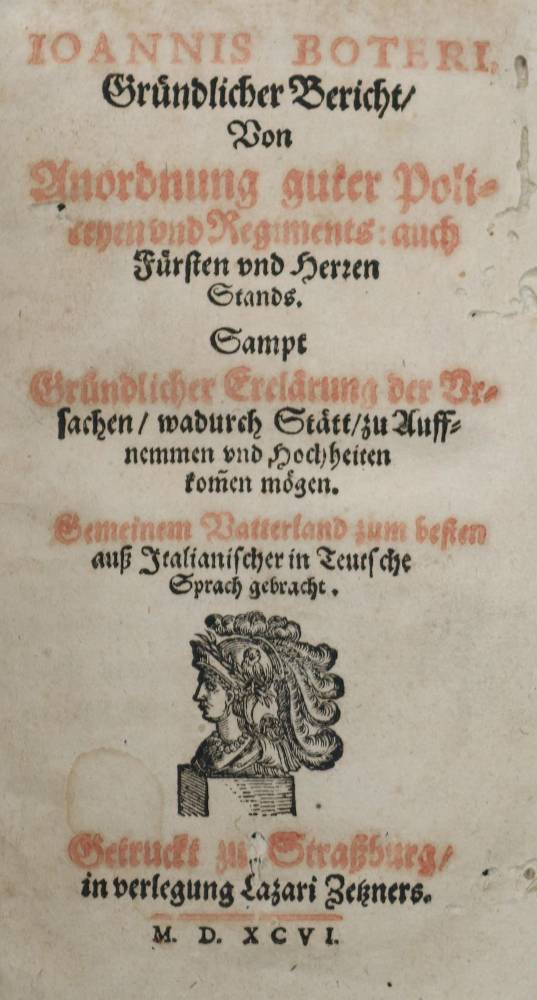 IOANNIS BOTERI,
Gründlicher Bericht/
Von
Anordnung guter Poli-
ceyen vnd Regiments: auch
Fürsten vnd Herren
Stands.
Sampt
Gründlicher Erclärung der Vr-
sachen/ wadurch Stätt/zu Auff-
nemmen vnd Hochheiten
kom̃en mögen.
Gemeinem Vatterland zum besten
auß Italianischer in Teutsche
Sprach gebracht.
Getruckt zu Straßburg/
in verlegung Lazari Zetzners.
M. D. XCVI.